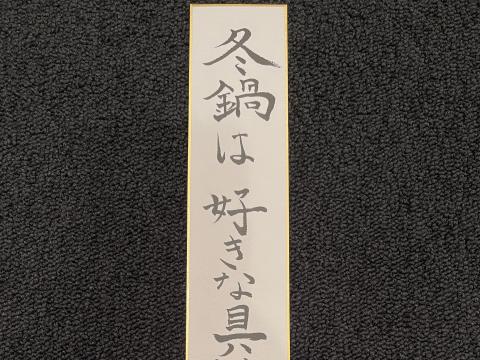 冬鍋は 好きな具